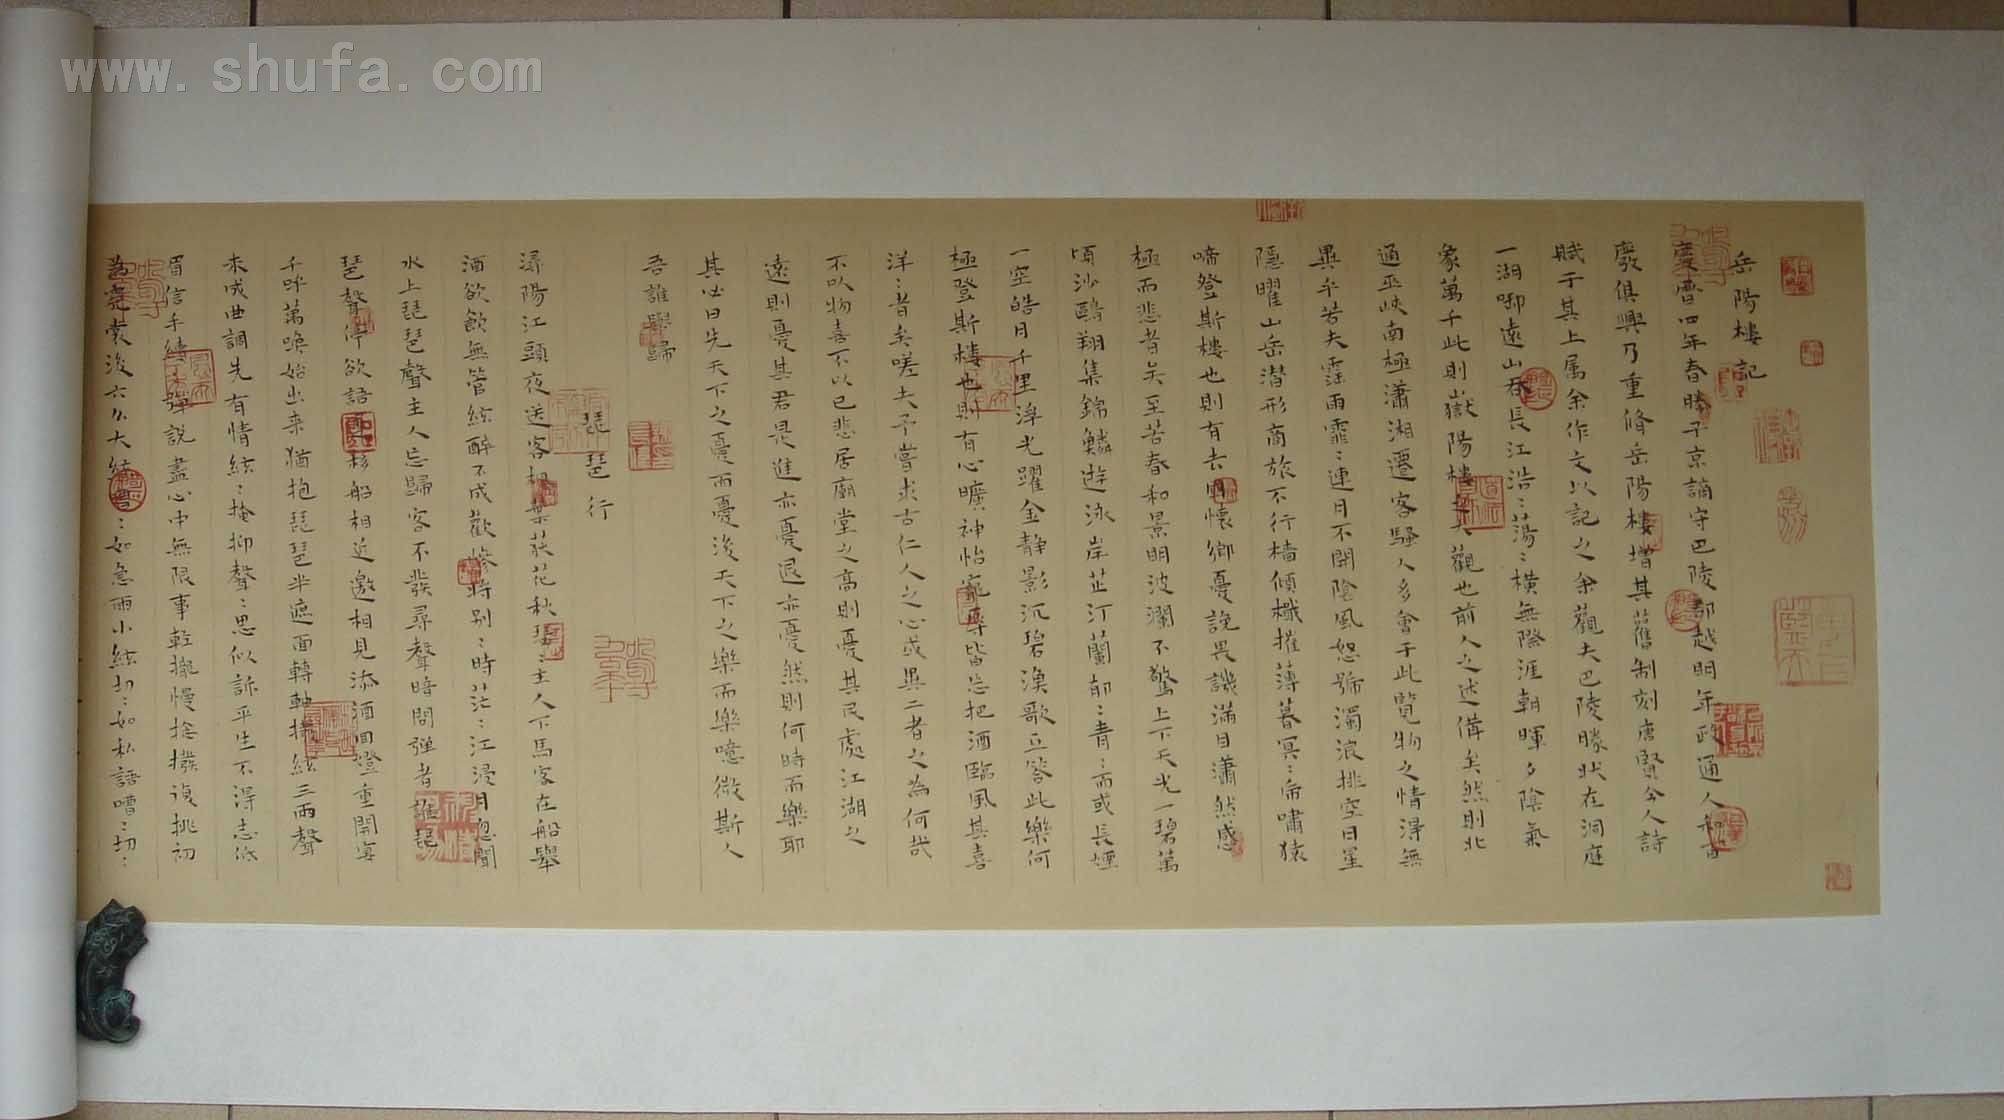 www.shufa.com
岳陽樓記
慶曆四年春滕子京謫守巴陵郡越明年政通人和百
廢俱興乃重脩岳陽樓增其舊制刻唐賢今人詩
賦于其上屬余作文以記之余觀夫巴陵勝狀在洞庭
一湖啣遠山吞長江浩〻蕩〻橫無際涯朝暉夕陰氣
象萬千此則嶽陽樓大觀也前人之述備矣然則北
通巫峽南極瀟湘遷客騷人多會于此覽物之情得無
異乎若夫霪雨霏〻連月不開陰風怒號濁浪排空日星
隱曜山岳潛形商旅不行檣傾檝摧薄暮冥〻虎嘯猿
啼登斯樓也則有去國懷鄉憂讒畏譏滿目蕭然感
極而悲者矣至若春和景明波瀾不驚上下天光一碧萬
頃沙鷗翔集錦鱗遊泳岸芷汀蘭郁〻青〻而或長煙
一空皓月千里浮光躍金靜影沉碧漁歌互答此樂何
極登斯樓也則有心曠神怡寵辱皆忘把酒臨風其喜
洋〻者矣嗟夫予嘗求古仁人之心或異二者之為何哉
不以物喜不以己悲居廟堂之高則憂其民處江湖之
遠則憂其君是進亦憂退亦憂然則何時而樂耶
其必曰先天下之憂而憂後天下之樂而樂噫微斯人
吾誰與歸
琵琶行
潯陽江頭夜送客楓葉荻花秋瑟〻主人下馬客在船舉
酒欲飲無管絃醉不成歡慘將別〻時茫〻江浸月忽聞
水上琵琶聲主人忘歸客不發尋聲暗問彈者誰琵
琶聲停欲語遲移船相近邀相見添酒回燈重開宴
千呼萬喚始出來猶抱琵琶半遮面轉軸撥絃三兩聲
未成曲調先有情絃〻掩抑聲〻思似訴平生不得志低
眉信手續〻彈說盡心中無限事輕攏慢捻撥復挑初
為霓裳後六么大絃嘈〻如急雨小絃切〻如私語嘈〻切〻